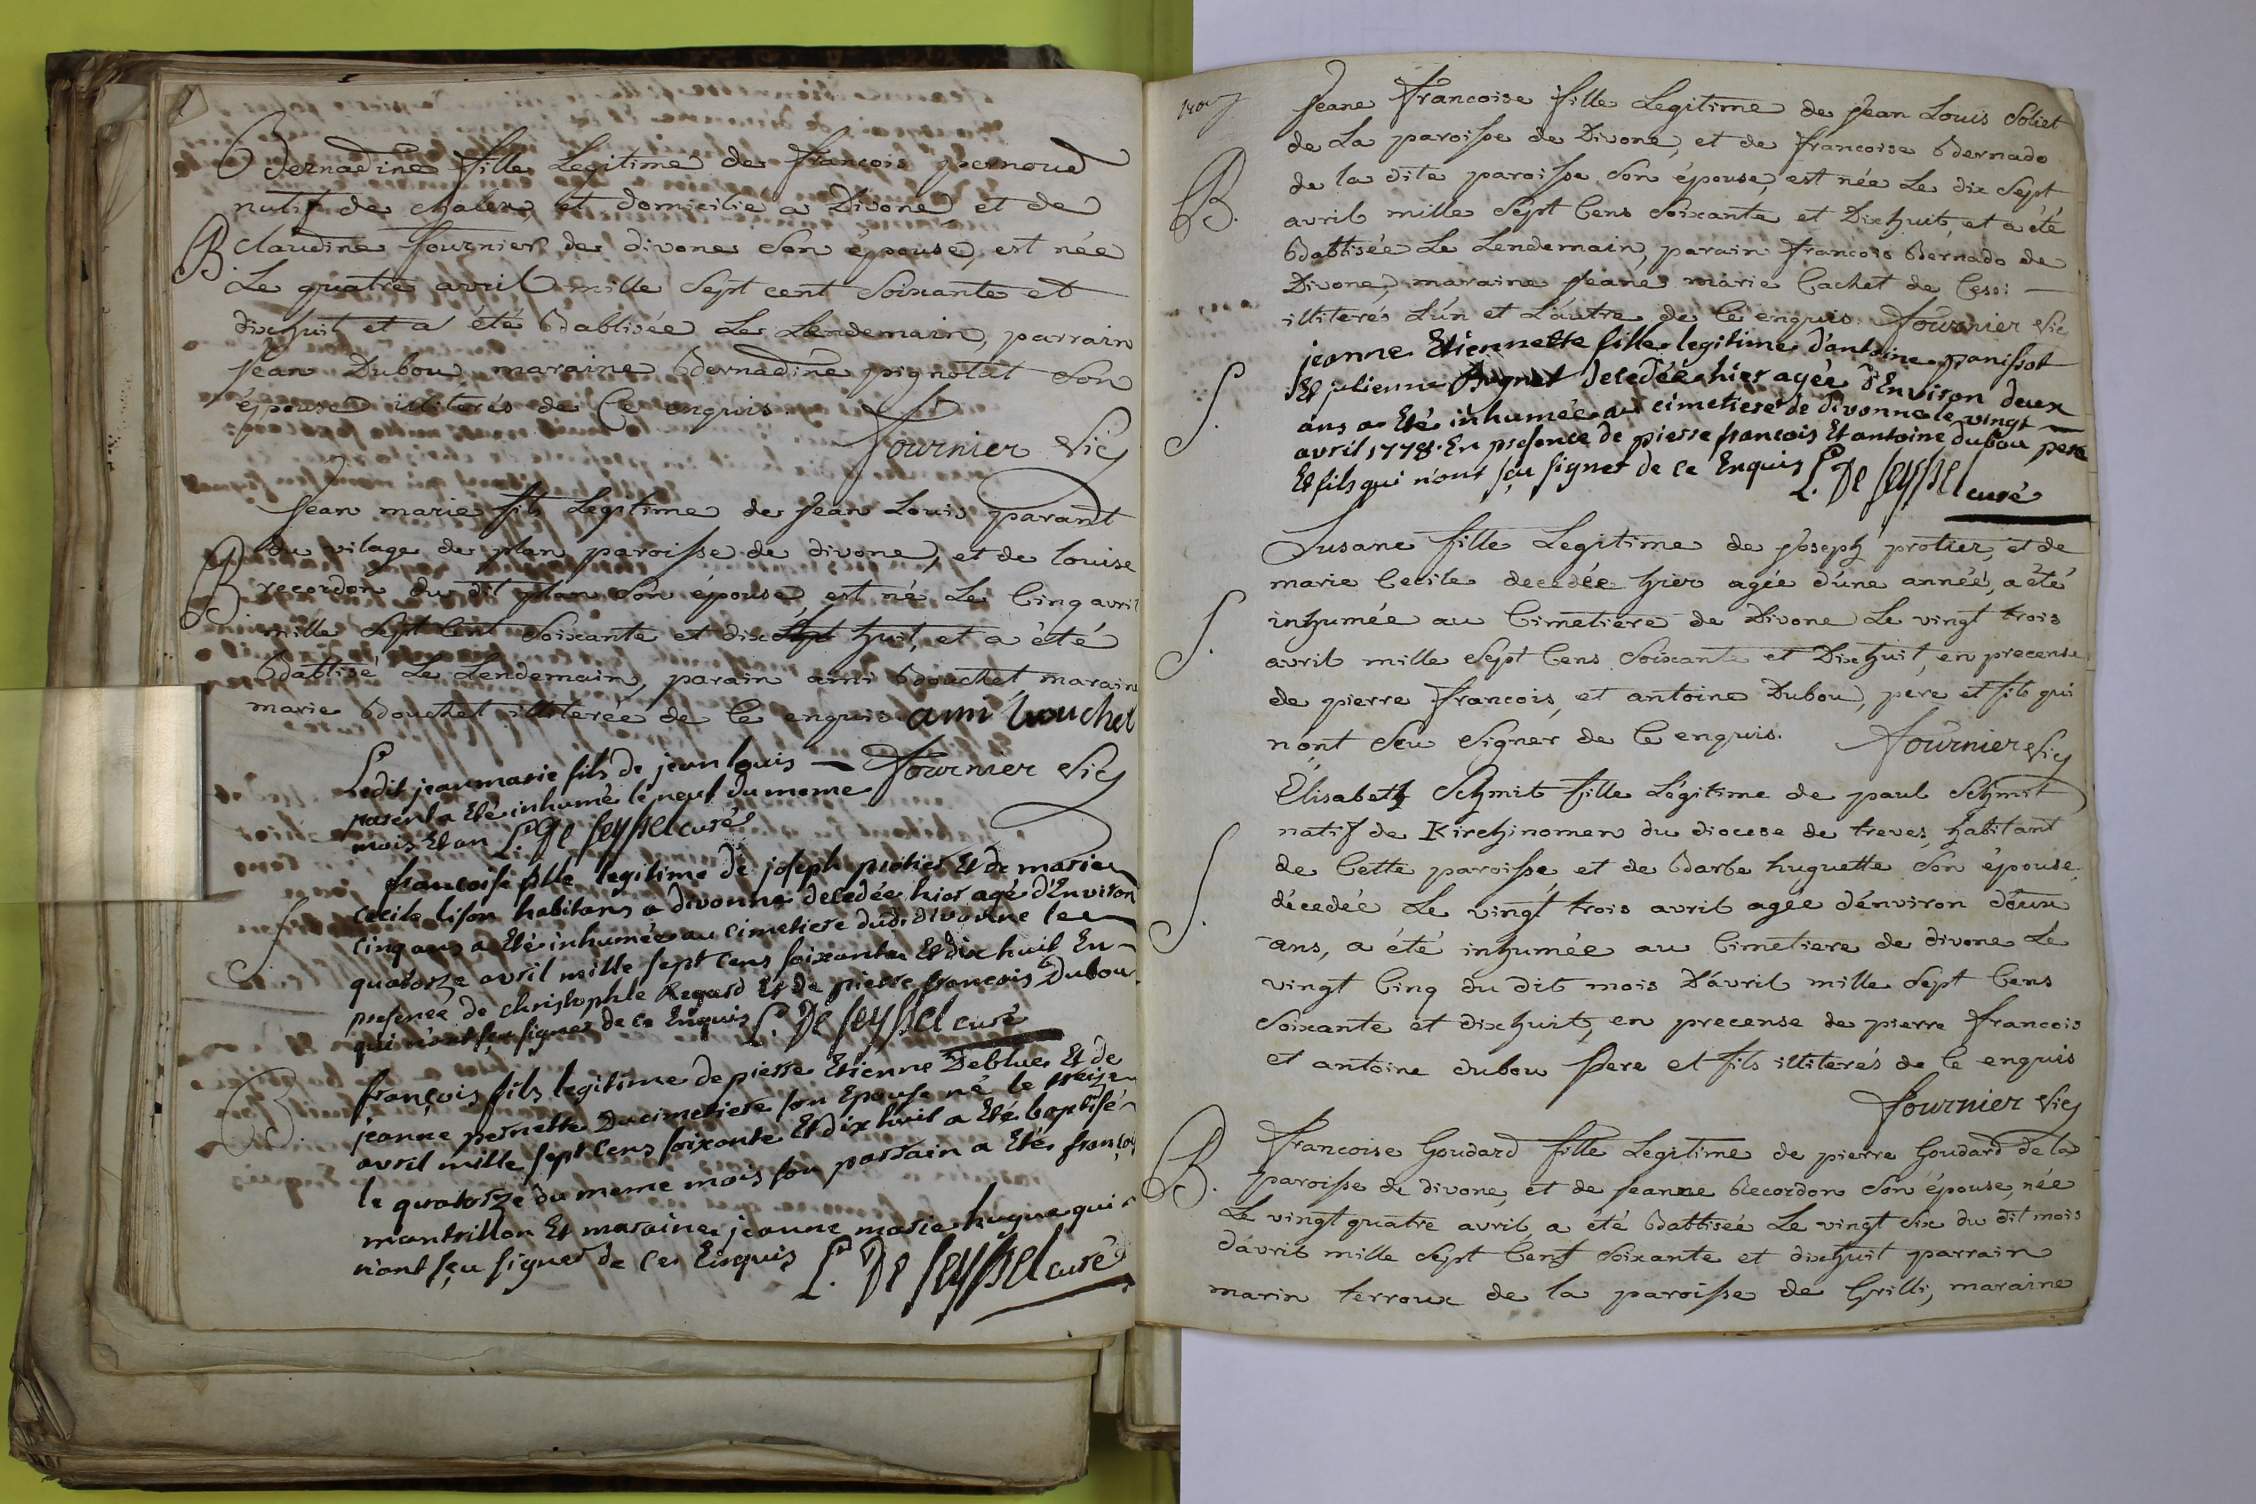 Bernadine fille Legitime de francois pernoud
natif de chalex et domicilié a Divone et de
B claudine fournier de divone son épouse, est née
Le quatre avril mille sept cent soixante et
dixhuit et a été Babtisée Le Lendemain, parrain
jean Dubou, maraine Bernadine pignolat son
épouse illiterés de Ce enquis
fournier Vic
jean marie fils Legitime de jean Louis parandt
du vilage de plan paroisse de divone, et de louise
B recordon du dit plan son épouse est né Le Cinq avril
mille sept Cent soixante et dix sept huit, et a été
Babtisé Le Lendemain, parain ami Bouchet maraine
marie Bouchet illiterée de Ce enquis ami bouchet
Ledit jeanmarie fils de jean louis — fournier Vic
parent a Eté inhumé le neuf du meme
mois Et an L. De seyssel curé
francoise fille legitime de joseph protier Et de marie
cecile lison habitans a divonne decedée hier agé d'Environ
S. cinq ans a Eté inhumée au cimetiere dudi divonne le
quatorze avril mille sept cens soixante Et dix huit En
presence de christophle Regard Et de pierre francois Dubou
qui n'ont sçu signer de ce Enquis L. De seyssel curé
françois fils legitime de pierre Etienne Deblue Et de
B. jeanne pernette Ducimetiere son Epouse né le treize
avril mille sept cens soixante Et dix huit a Eté baptisé
le quatorze du meme mois son parrain a Eté françois
mantrillon Et maraine jeanne marie hugue qui
n'ont sçu signer de ce Enquis L. De seyssel curé
jeane francoise fille Legitime de jean Louis Soliet
de La paroisse de Divone, et de francoise Bernado
B. de la dite paroisse son épouse, est née Le dix sept
avril mille sept Cens soixante et Dixhuit, et a été
Babtisée Le Lendemain, parain francois Bernado de
Divone, maraine jeane marie Cachet de Cessi —
illiterés L'un et L'autre de Ce enquis. fournier Vic
jeanne Etiennette fille legitime d'antoine panissot
S. Et julienne decedée hier agée d'Environ deux
ans a Eté inhumée au cimetiere de divonne le vingt
avril 1778. En presence de pierre francois Et antoine dubou pere
Et fils qui n'ont sçu signer de ce Enquis L. De seyssel curé
Susane fille Legitime de joseph protier, et de
marie Cecile decedée hier agée d'une année, a été
S. inhumée au Cimetiere de Divone Le vingt trois
avril mille sept Cens soixante et Dixhuit, en precense
de pierre francois, et antoine Dubou, pere et fils qui
n'ont sçu signer de Ce enquis. fournier Vic
Elisabeth Schmit fille Légitime de paul Schmit
natif de Kirchinomen du diocese de treves, habitant
S. de Cette paroisse et de Barbe huguette son épouse
décedée Le vingt trois avril agée d'environ deux
ans, a été inhumée au Cimetiere de divone Le
vingt Cinq du dit mois D'avril mille sept Cens
soixante et dixhuit, en precense de pierre francois
et antoine dubou pere et fils illiterés de Ce enquis
fournier Vic
B. francoise Goudard fille Legitime de pierre Goudard de la
paroisse de divone, et de jeanne Recordon son épouse, née
Le vingt quatre avril, a été Babtisée Le vingt six du dit mois
d'avril mille sept Cent soixante et dixhuit parrain
marin terroux de la paroisse de Grilli, maraine